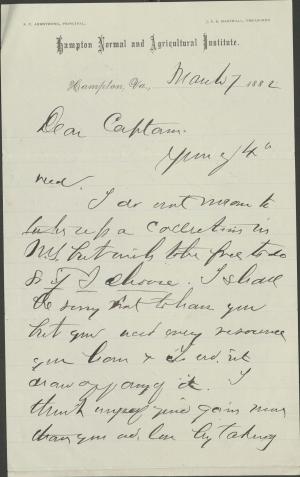 S. C. ARMSTRONG, PRINCIPAL. J. F. B. MARSHALL, TREASURER
Hampton Normal and Agricultural Institute.
Hampton, Va., March 7 1882
Dear Captain.
Yours of 4th
recd.
I do not mean to
up a collection in
N.Y. but wish to be free to do
so if I choose. I shall
be sorry not to have you
but you need every resource
you have & it
draw off any of it. I
think you
you by taking